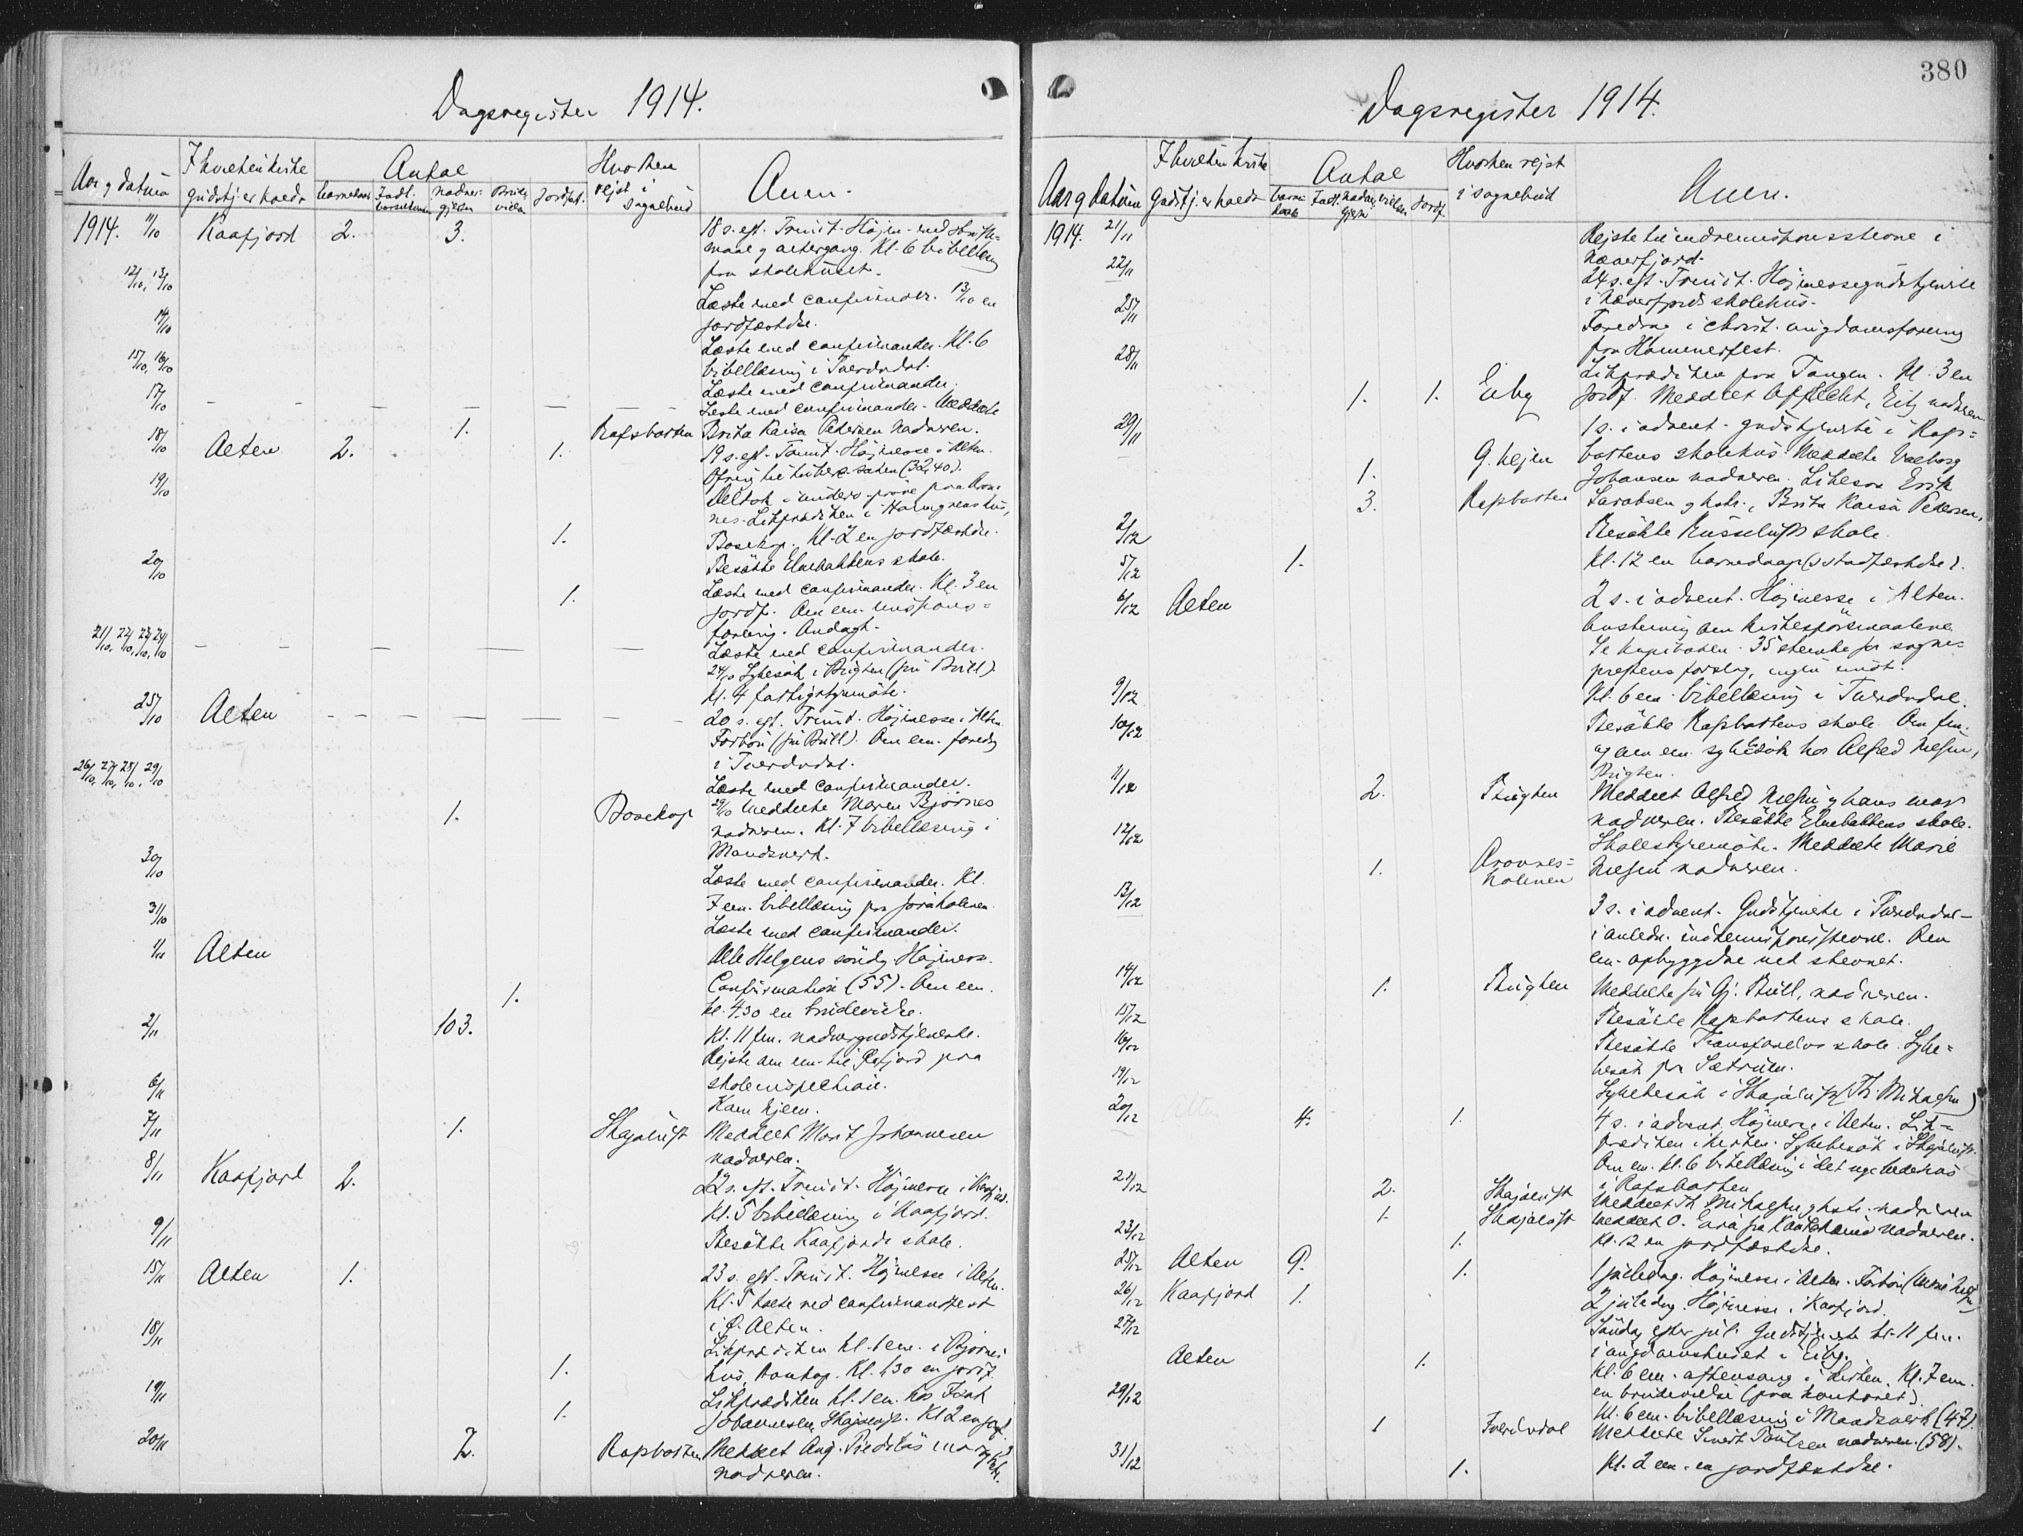 Dagsregister 1914.
Aar og datum
I hvilken kirke
gudstj. er holdt
Antal
barnedaab
nadver-
gjester
Jordf.
Hvorhen
rejst i
sognebud
Anm.
1914. 11/10 Kaafjord 2. 3. 18 s. eft. Trinit. Højm. med skrifte-
maal og altergang. Kl. 6 bibellæsn.
paa skolehuset.
12/10, 13/10 Læste med confirmander. 13/10 en
jordfæstelse.
14/10 Læste med confirmander. Kl. 6
bibellæsning i Tverdvdal.
15/10, 16/10 Læste med confirmander.
17/10 Læste med confirmander. Meddelte
1. Rafsbotten Brita Kaisa Pedersen nadveren.
18/10 Alten 2. 1. 19 s. eft. Trinit. Højmesse i Alten.
Ofring til (32,40).
19/10 Deltok i
Likprædiken i
1. Bosekop. Kl. 2 en jordfæstelse.
20/10 Besøkte Elvebakkens skole.
1. Læste med confirmander. Kl. 3 en
jordf. Om em. missions-
forening. Andagt.
21/10, 22/10, 23/10, 24/10 Læste med confirmander.
24/10 Sykesøk i Bugten (fru Bull)
Kl. 4 fattigstyremøte.
25/10 Alten 20 s. eft. Trinit. Højmesse i Alten.
Forbøn (fru Bull). Om em. foredrag
i Tverdvdal.
26/10, 27/10, 28/10, 29/10 Læste med confirmander.
1. Bosekop 29/10 Meddelte Maren Bjørnes
nadveren. Kl. 7 bibellæsning i
Mandsverk.
30/10 Læste med confirmander. Kl.
7 em. bibellæsning paa Joraholmen.
31/10 Læste med confirmander.
1/11 Alten Alle Helgens søndag. Højmesse.
1. Confirmation (55). Om em.
kl. 4.30 en brudevielse.
2/11 103. Kl. 11 fm. nadvergudstjeneste.
Rejste om em. til Refjord paa
skoleinspektion.
6/11 Kom hjem.
7/11 1. Skajeluft Meddelt Marit Johannesen
nadveren.
8/11 Kaafjord 2. 22 s. eft. Trinit. Højmesse i Kaafjord.
Kl. 5 bibellæsning i Kaafjord.
9/11 Besøkte Kaafjords skole.
15/11 Alten 1. 23 s. eft. Trinit. Højmesse i Alten.
Kl. 5 talte ved confirmandfest
i Ø. Alten.
18/11 Likprædiken kl. 1 em. i Bjørnes
1. hus, Bosekop. Kl. 1.30 en jordf.
19/11 Likprædiken kl. 1 em. hos
1. Johannesen Skajeluft. Kl. 2 en jordf.
20/11 2. Rapbotten Meddelt Aug. og
nadveren.
Dagsregister 1914.
380
Aar og datum
I hvilken kirke
gudstj. er holdt
Antal
barne-
daab
nadver-
gjester
vielser
Jordf.
Hvorhen rejst
i sognebud
Anm.
1914. 21/11 Rejste til indremissionsstevne i
Næverfjord.
22/11 24 s. eft. Trinit. Højmessegudstjeneste
i Næverfjords skolehus.
25/11 Foredrag i christ. ungdomsforening
paa Hammerfest.
28/11 Likprædiken paa Tangen. Kl. 3 en
1. 1. Eiby jordf. Meddelt Eiby nadveren
29/11 1 s. i advent. gudstjeneste i Raps-
1. G. hejen bottens skolehus. Meddelte Valborg
Johansen nadveren. Likesaa Erik
3. Rapbotten Larsen og hstr., Brita Kaisa Pedersen.
2/12 Besøkte Russeluft skole.
5/12 1. Kl. 12 en barnedaap (stadfæstelse).
6/12 Alten 2 s. i advent. Højmesse i Alten.
Avstemning om kirkespørsmaalene.
35 stemte for sogne-
prestens forslag, ingen imot.
9/12 Kl. 6 em. bibellæsning i Tverdvdal.
10/12 Besøkte Rapbottens skole. Om fm.
og om em. sykesøk hos Alfred Nilsen,
Bugten.
11/12 2. Bugten Meddelt Alfred Nilsen og hans mor
nadveren. Besøkte Elvebakkens skole.
12/12 Skolestyremøte. Meddelte Marie
1. Aronnes-
holmen Nilsen nadveren.
13/12 3 s. i advent. Gudstjeneste i Tverdvdal
i anledn. indremissionsstevne. Om
em. opbyggelse ved stevnet.
14/12 1. Bugten Meddelte fru Gj. Bull, nadveren.
15/12 Besøkte Rapbottens skole.
16/12 Besøkte Transfarelvs skole. Syke-
besøk paa Sætrum.
19/12 Sykebesøk i Skajeluft (Th. Mikalsen)
20/12 Alt 4. 1. 4 s. i advent. Højmesse i Alten. Lik-
prædiken i kirken. Sykebesøk i Skajeluft.
Om em. kl. 6 bibellæsning i det nye bedehus
i Rafsbotten
21/12 2. Skajeluft Meddelt Th. Mikalsen og hstr. nadveren
1. Skajeluft Meddelt O. fra Kautokeino nadveren.
23/12 1. Kl. 12 en jordfæstelse.
25/12 Alten 9. 1. 1 juledag. Højmesse i Alten. Forbøn
26/12 Kaafjord 1. 2 juledag. Højmesse i Kaafjord.
27/12 Søndag efter jul. Gudstjeneste kl. 11 fm.
i ungdomshuset i Eiby.
Alten 1. Kl. 6 em. aftensang i kirken. Kl. 7 em.
en brudevielse (paa kontoret).
29/12 Kl. 6 em. bibellæsning i Mandsverk (47).
1 Tverdvdal Meddelte Sivert Poulsen nadveren. (58).
31/12 1. Kl. 2 em. en jordfæstelse.